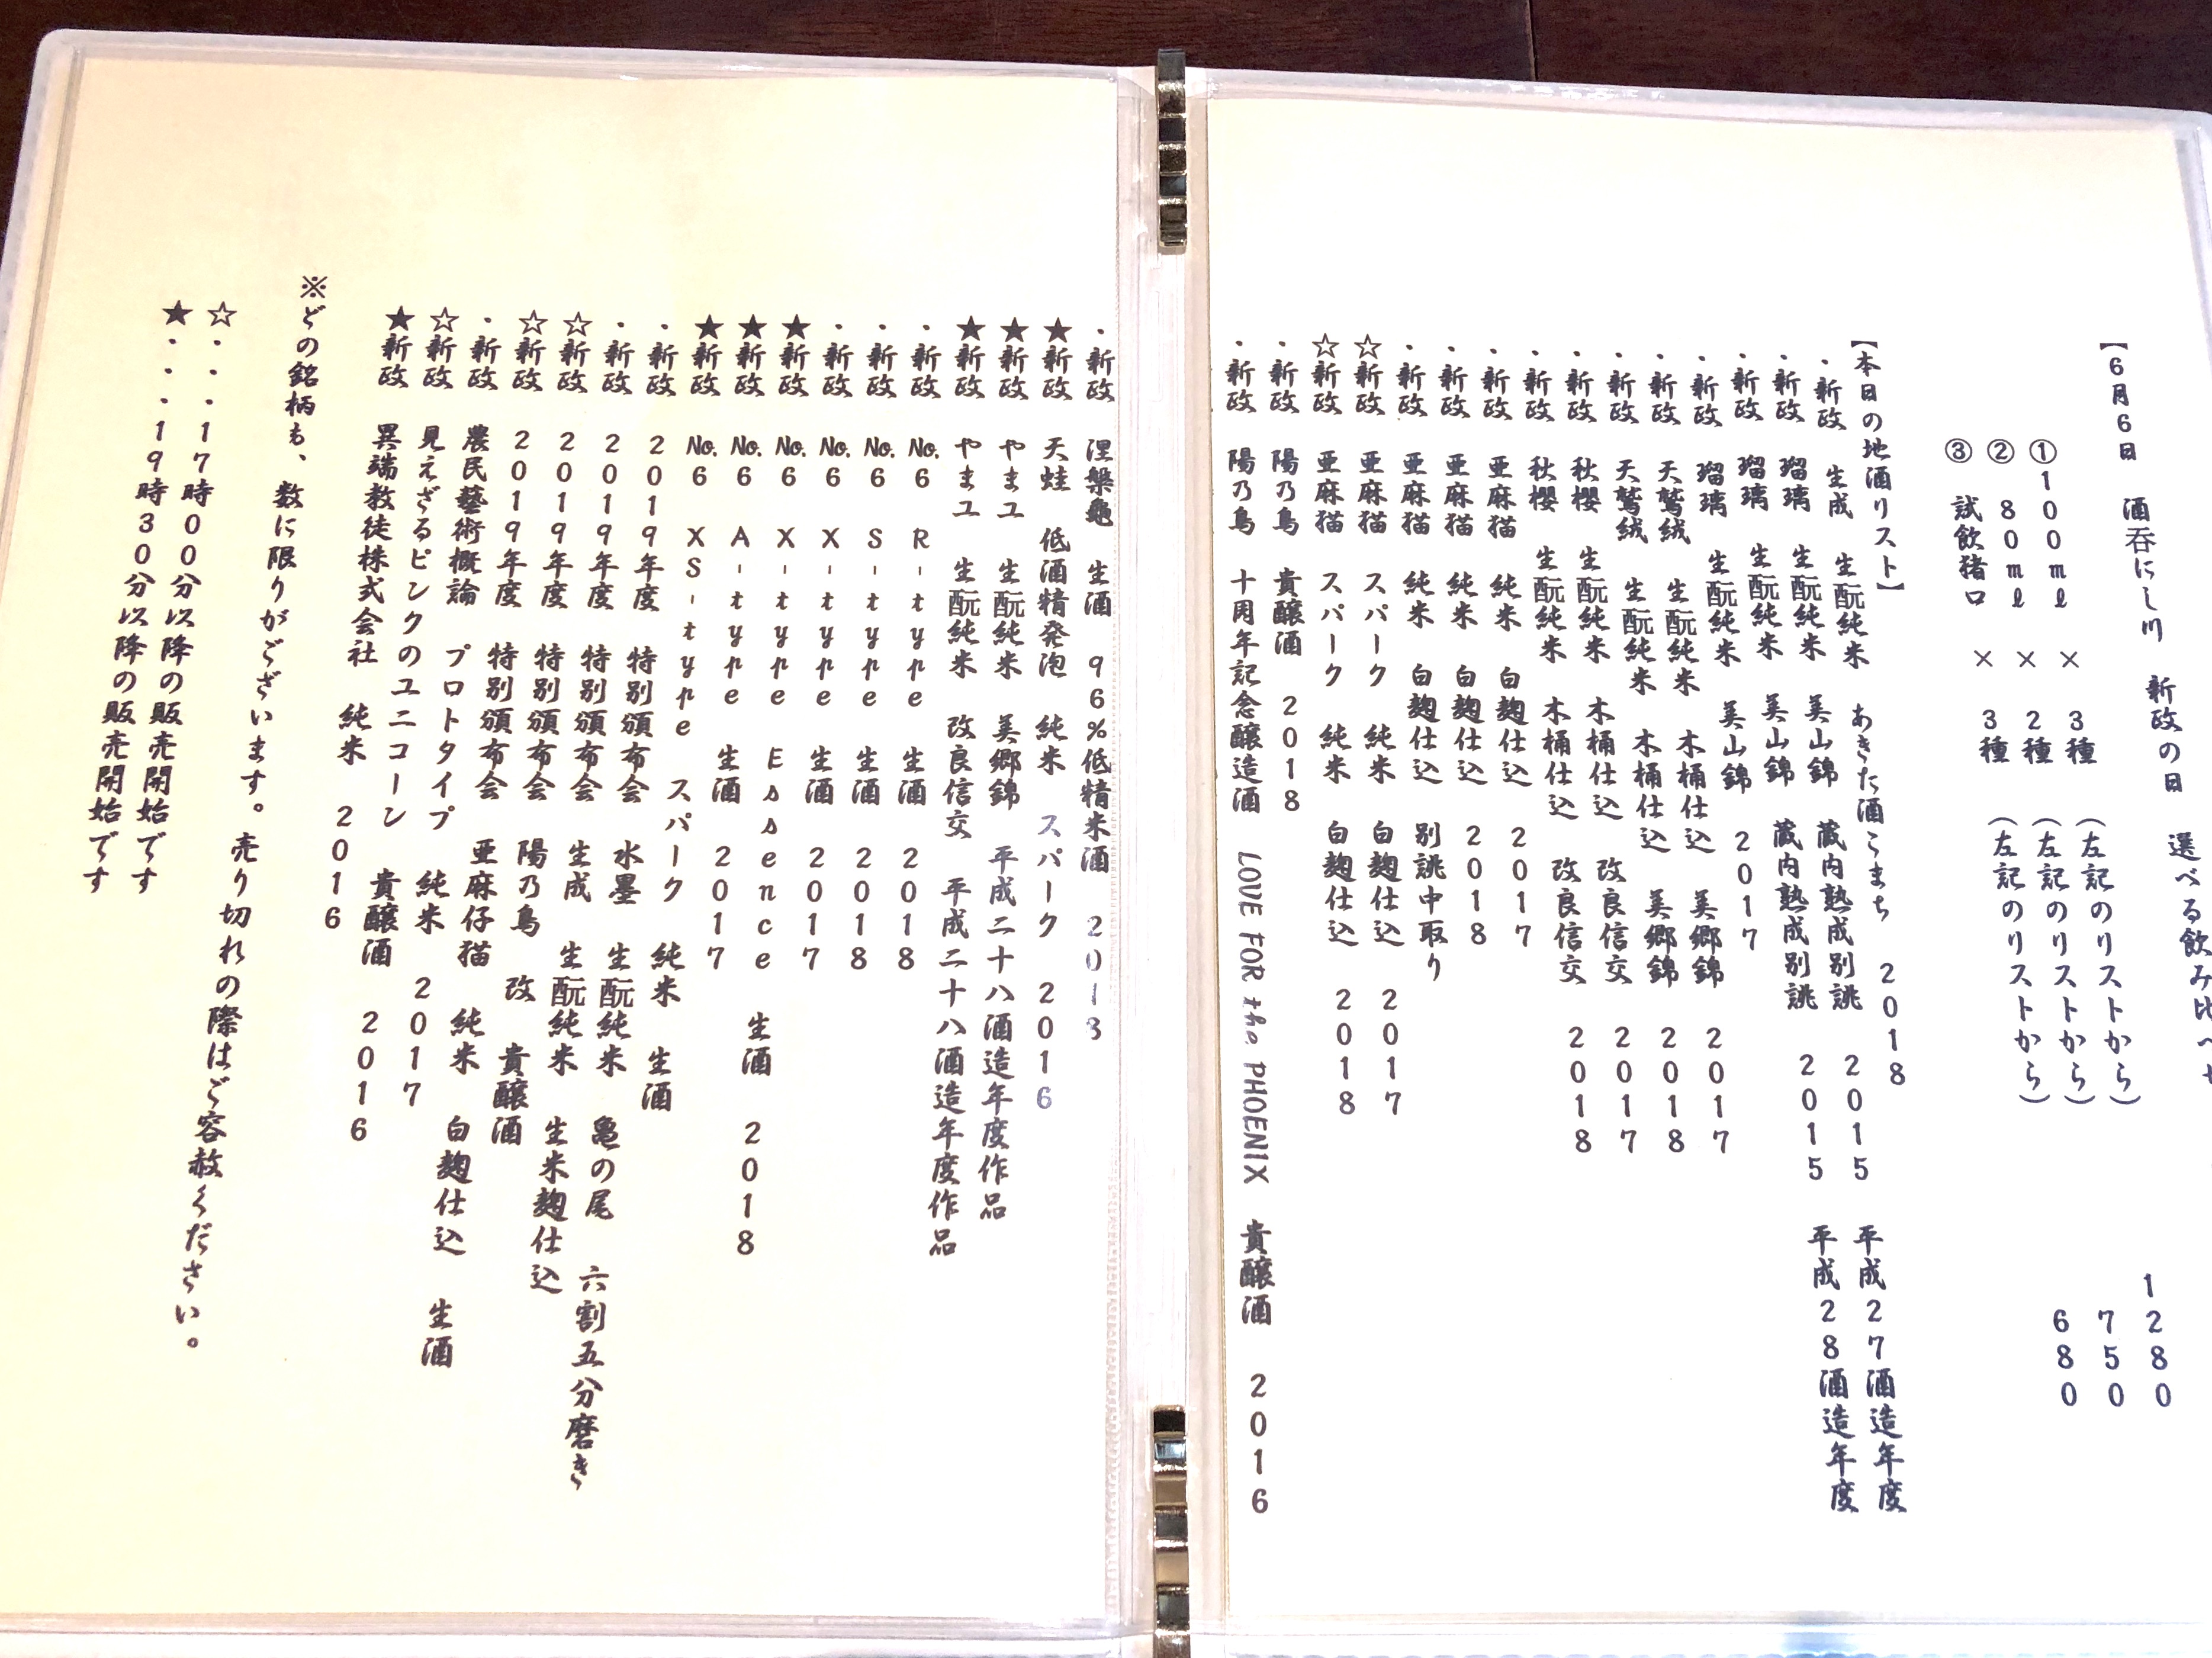 【6月6日　酒呑にし川　新政の日　選べる飲み比べ
①100mℓ　×　3種　（左記のリストから）　1280
②　80mℓ　×　2種　（左記のリストから）　750
③　試飲猪口　×　3種　（左記のリストから）　680
【本日の地酒リスト】
・新政　生成　生酛純米　あきた酒こまち　2018
・新政　瑠璃　生酛純米　美山錦　蔵内熟成別誂　2015　平成27酒造年度
・新政　瑠璃　生酛純米　美山錦　蔵内熟成別誂　2015　平成28酒造年度
・新政　瑠璃　生酛純米　美山錦　2017
・新政　天鷲絨　生酛純米　木桶仕込　美郷錦　2017
・新政　天鷲絨　生酛純米　木桶仕込　美郷錦　2018
・新政　秋櫻　生酛純米　木桶仕込　改良信交　2017
・新政　秋櫻　生酛純米　木桶仕込　改良信交　2018
・新政　亜麻猫　純米　白麹仕込　2017
・新政　亜麻猫　純米　白麹仕込　2018
・新政　亜麻猫　純米　白麹仕込　別誂中取り
☆新政　亜麻猫　スパーク　純米　白麹仕込　2017
☆新政　亜麻猫　スパーク　純米　白麹仕込　2018
・新政　陽乃鳥　貴醸酒　2018
・新政　陽乃鳥　十周年記念醸造酒　LOVE FOR the PHOENIX　貴醸酒　2016
・新政　涅槃龜　生酒　96%低精米酒　2018
★新政　天蛙　低酒精発泡　純米　スパーク　2016
★新政　やまユ　生酛純米　美郷錦　平成二十八酒造年度作品
★新政　やまユ　生酛純米　改良信交　平成二十八酒造年度作品
・新政　No.6　R-type　生酒　2018
・新政　No.6　S-type　生酒　2018
・新政　No.6　X-type　生酒　2017
★新政　No.6　X-type　Essence　生酒　2018
★新政　No.6　A-type　生酒　2017
★新政　No.6　XS-type　スパーク　純米　生酒
・新政　2019年度　特別頒布会　水墨　生酛純米　亀の尾　六割五分磨き
・新政　2019年度　特別頒布会　生成　生酛純米　生米麹仕込
☆新政　2019年度　特別頒布会　陽乃鳥　改　貴醸酒
☆新政　2019年度　特別頒布会　亜麻仔猫　純米　白麹仕込　生酒
・新政　農民藝術概論　プロトタイプ　純米　2017
☆新政　見えざるピンクのユニコーン　貴醸酒　2016
★新政　異端教徒株式会社　純米　2016
※どの銘柄も、数に限りがございます。売り切れの際はご容赦ください。
☆・・・17時00分以降の販売開始です
★・・・19時30分以降の販売開始です